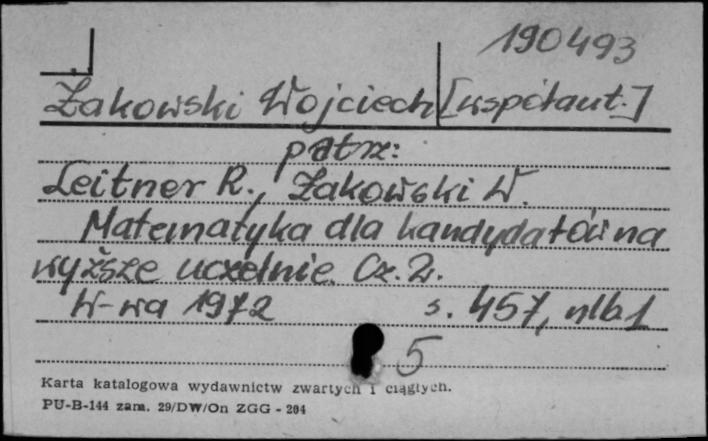 190493
Żakowski Wojciech [współaut.]
patrz:
Leitner R., Żakowski W.
Matematyka dla kandydatów na
wyższe uczelnie. Cz. 2.
W-wa 1972 s. 457, nlb 1
5
Karta katalogowa wydawnictw zwartych i ciągłych.
PU-B-144 zam. 29/DW/On ZGG - 204